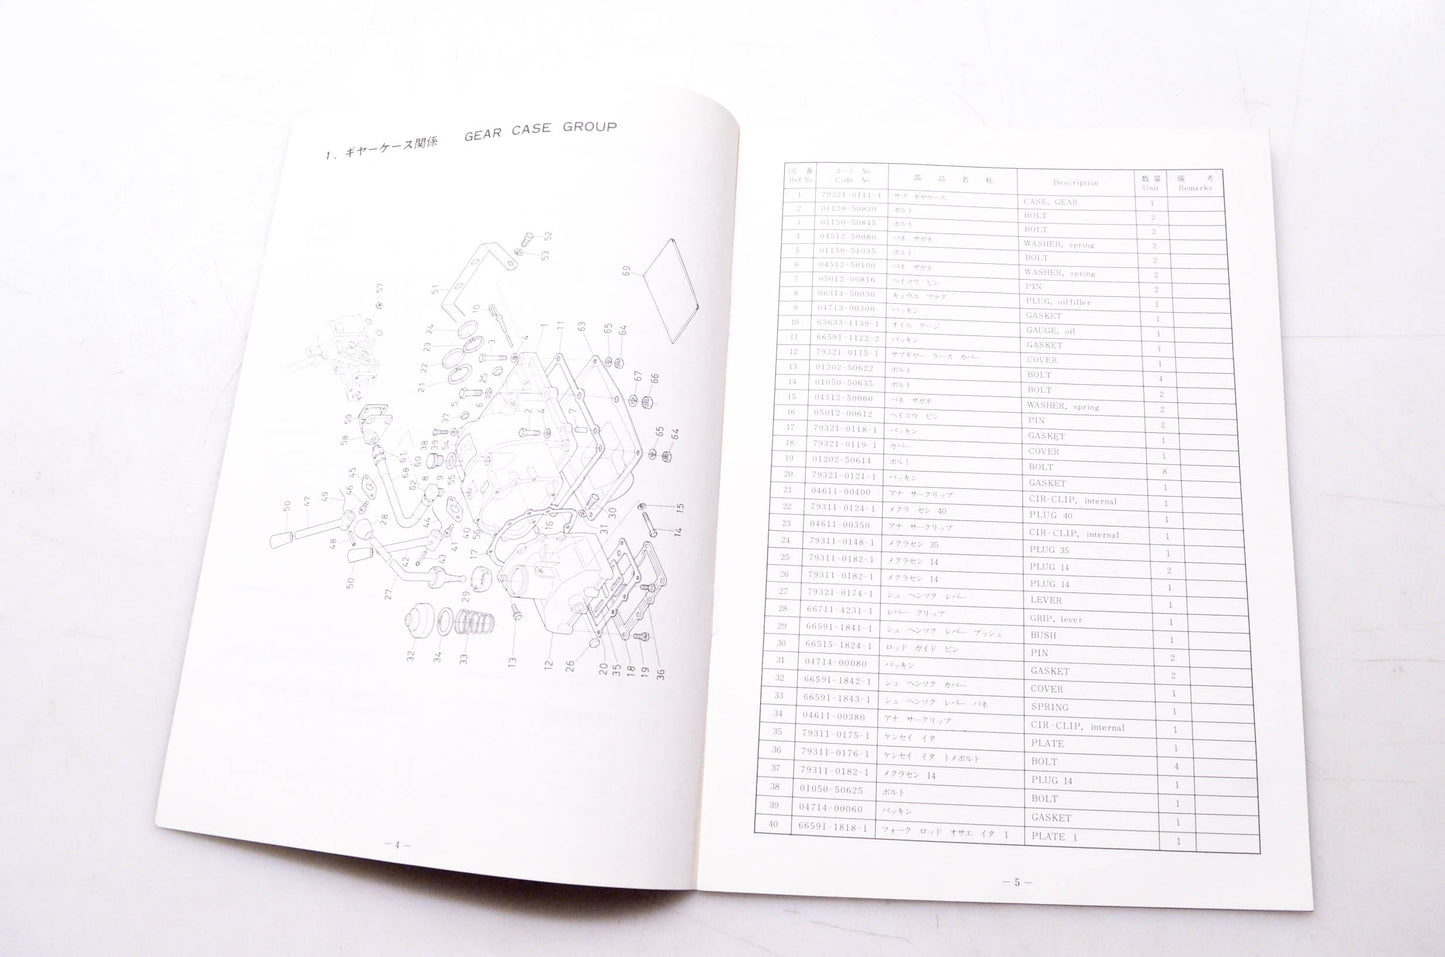 1. ギヤーケース関係 GEAR CASE GROUP
57
52
53
51
69
10
24
23
22
21
3
4
1
11
63
65
64
25
67
66
59
58
5
6
37
2
4
7
65
64
61
38
39
54
68
60
62
8
9
55
45
46
49
47
50
28
44
40
56
16
31
30
15
14
48
42
43
41
17
50
27
29
32
34
33
13
12
26
20
35
18
19
36
— 4 —
図番 コード No 部品名称 Description 数量 備考
Ref.No Code No Unit Remarks
1 79321-0111-1 サブ ギヤケース CASE, GEAR 1
2 01120-50830 ボルト BOLT 2
3 01150-50845 ボルト BOLT 2
4 04512-50080 バネ ザガネ WASHER, spring 2
5 01150-51035 ボルト BOLT 2
6 04512-50100 バネ ザガネ WASHER, spring 2
7 05012-00816 ヘイコウ ピン PIN 2
8 06314-50030 キュウユ プラグ PLUG, oil filler 1
9 04713-00300 パッキン GASKET 1
10 63633-1139-1 オイル ゲージ GAUGE, oil 1
11 66591-1122-2 パッキン GASKET 1
12 79321-0115-1 サブギヤー ケース カバー COVER 1
13 01202-50622 ボルト BOLT 4
14 01050-50635 ボルト BOLT 2
15 04512-50060 バネ ザガネ WASHER, spring 2
16 05012-00612 ヘイコウ ピン PIN 2
17 79321-0118-1 パッキン GASKET 1
18 79321-0119-1 カバー COVER 1
19 01202-50614 ボルト BOLT 8
20 79321-0121-1 パッキン GASKET 1
21 04611-00400 アナ サークリップ CIR-CLIP, internal 1
22 79311-0124-1 メクラ セン 40 PLUG 40 1
23 04611-00350 アナ サークリップ CIR-CLIP, internal 1
24 79311-0148-1 メクラセン 35 PLUG 35 1
25 79311-0182-1 メクラセン 14 PLUG 14 2
26 79311-0182-1 メクラセン 14 PLUG 14 1
27 79321-0174-1 シュ ヘンソク レバー LEVER 1
28 66711-4231-1 レバー グリップ GRIP, lever 1
29 66591-1841-1 シュ ヘンソク レバー ブッシュ BUSH 1
30 66515-1824-1 ロッド ガイド ピン PIN 2
31 04714-00080 パッキン GASKET 2
32 66591-1842-1 シュ ヘンソク カバー COVER 1
33 66591-1843-1 シュ ヘンソク レバー バネ SPRING 1
34 04611-00380 アナ サークリップ CIR-CLIP, internal 1
35 79311-0175-1 ケンセイ イタ PLATE 1
36 79311-0176-1 ケンセイ イタ トメボルト BOLT 4
37 79311-0182-1 メクラセン 14 PLUG 14 1
38 01050-50625 ボルト BOLT 1
39 04714-00060 パッキン GASKET 1
40 66591-1818-1 フォーク ロッド オサエ イタ 1 PLATE 1 1
— 5 —